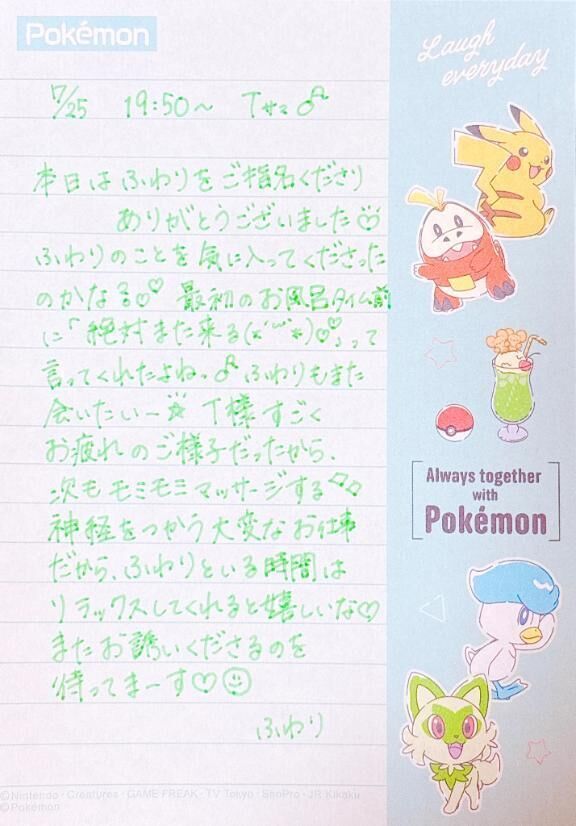 Pokémon
Laugh
everyday
7/25 19:50〜 Tサマ♂
本日はふわりをご指名くださり
ありがとうございました♡
ふわりのことを気に入ってくださった
のかなぁ♡♡ 最初のお風呂タイム前
に「絶対また来る(*´`*)♡♡」って
言ってくれたよね。♂ ふわりもまた
会いたいー☆ T様すごく
お疲れのご様子だったから、
次もモミモミマッサージする♪♪
神経をつかう大変なお仕事
だから、ふわりといる時間は
リラックスしてくれると嬉しいな♡
またお誘いくださるのを
待ってまーす♡☺
ふわり
Always together
with
Pokémon
©Nintendo・Creatures・GAME FREAK・TV Tokyo・ShoPro・JR Kikaku
©Pokémon